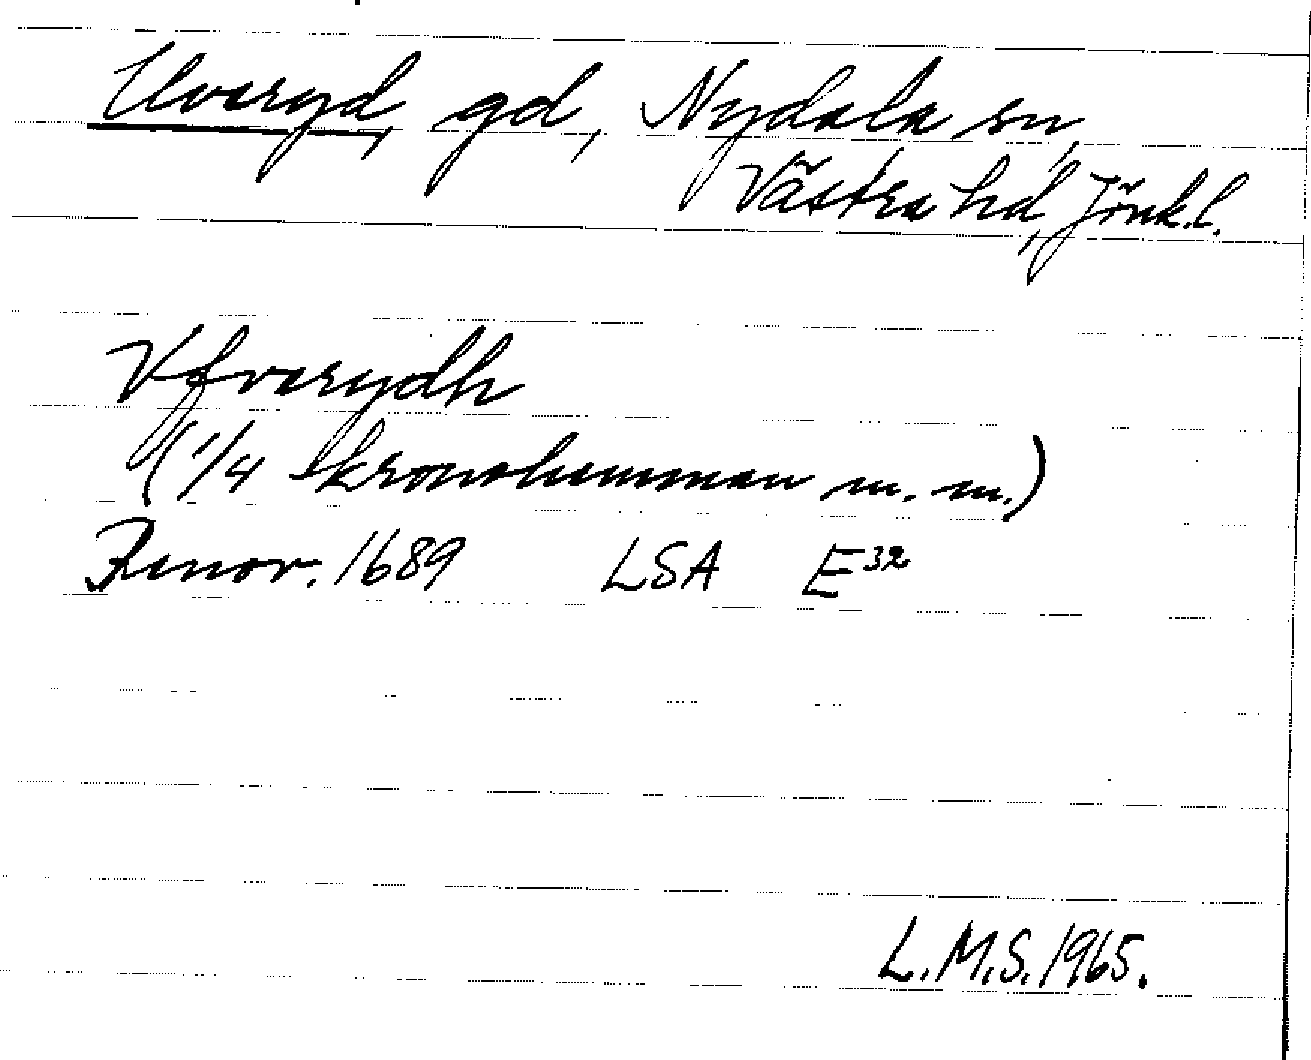 Uvaryd, gd, Nydala sn,
Västra hd, Jönk.l.
Vfvarydh
(1/4 kronohemman m. m.)
Renov. 1689 LSA E32
L.M.S. 1965.